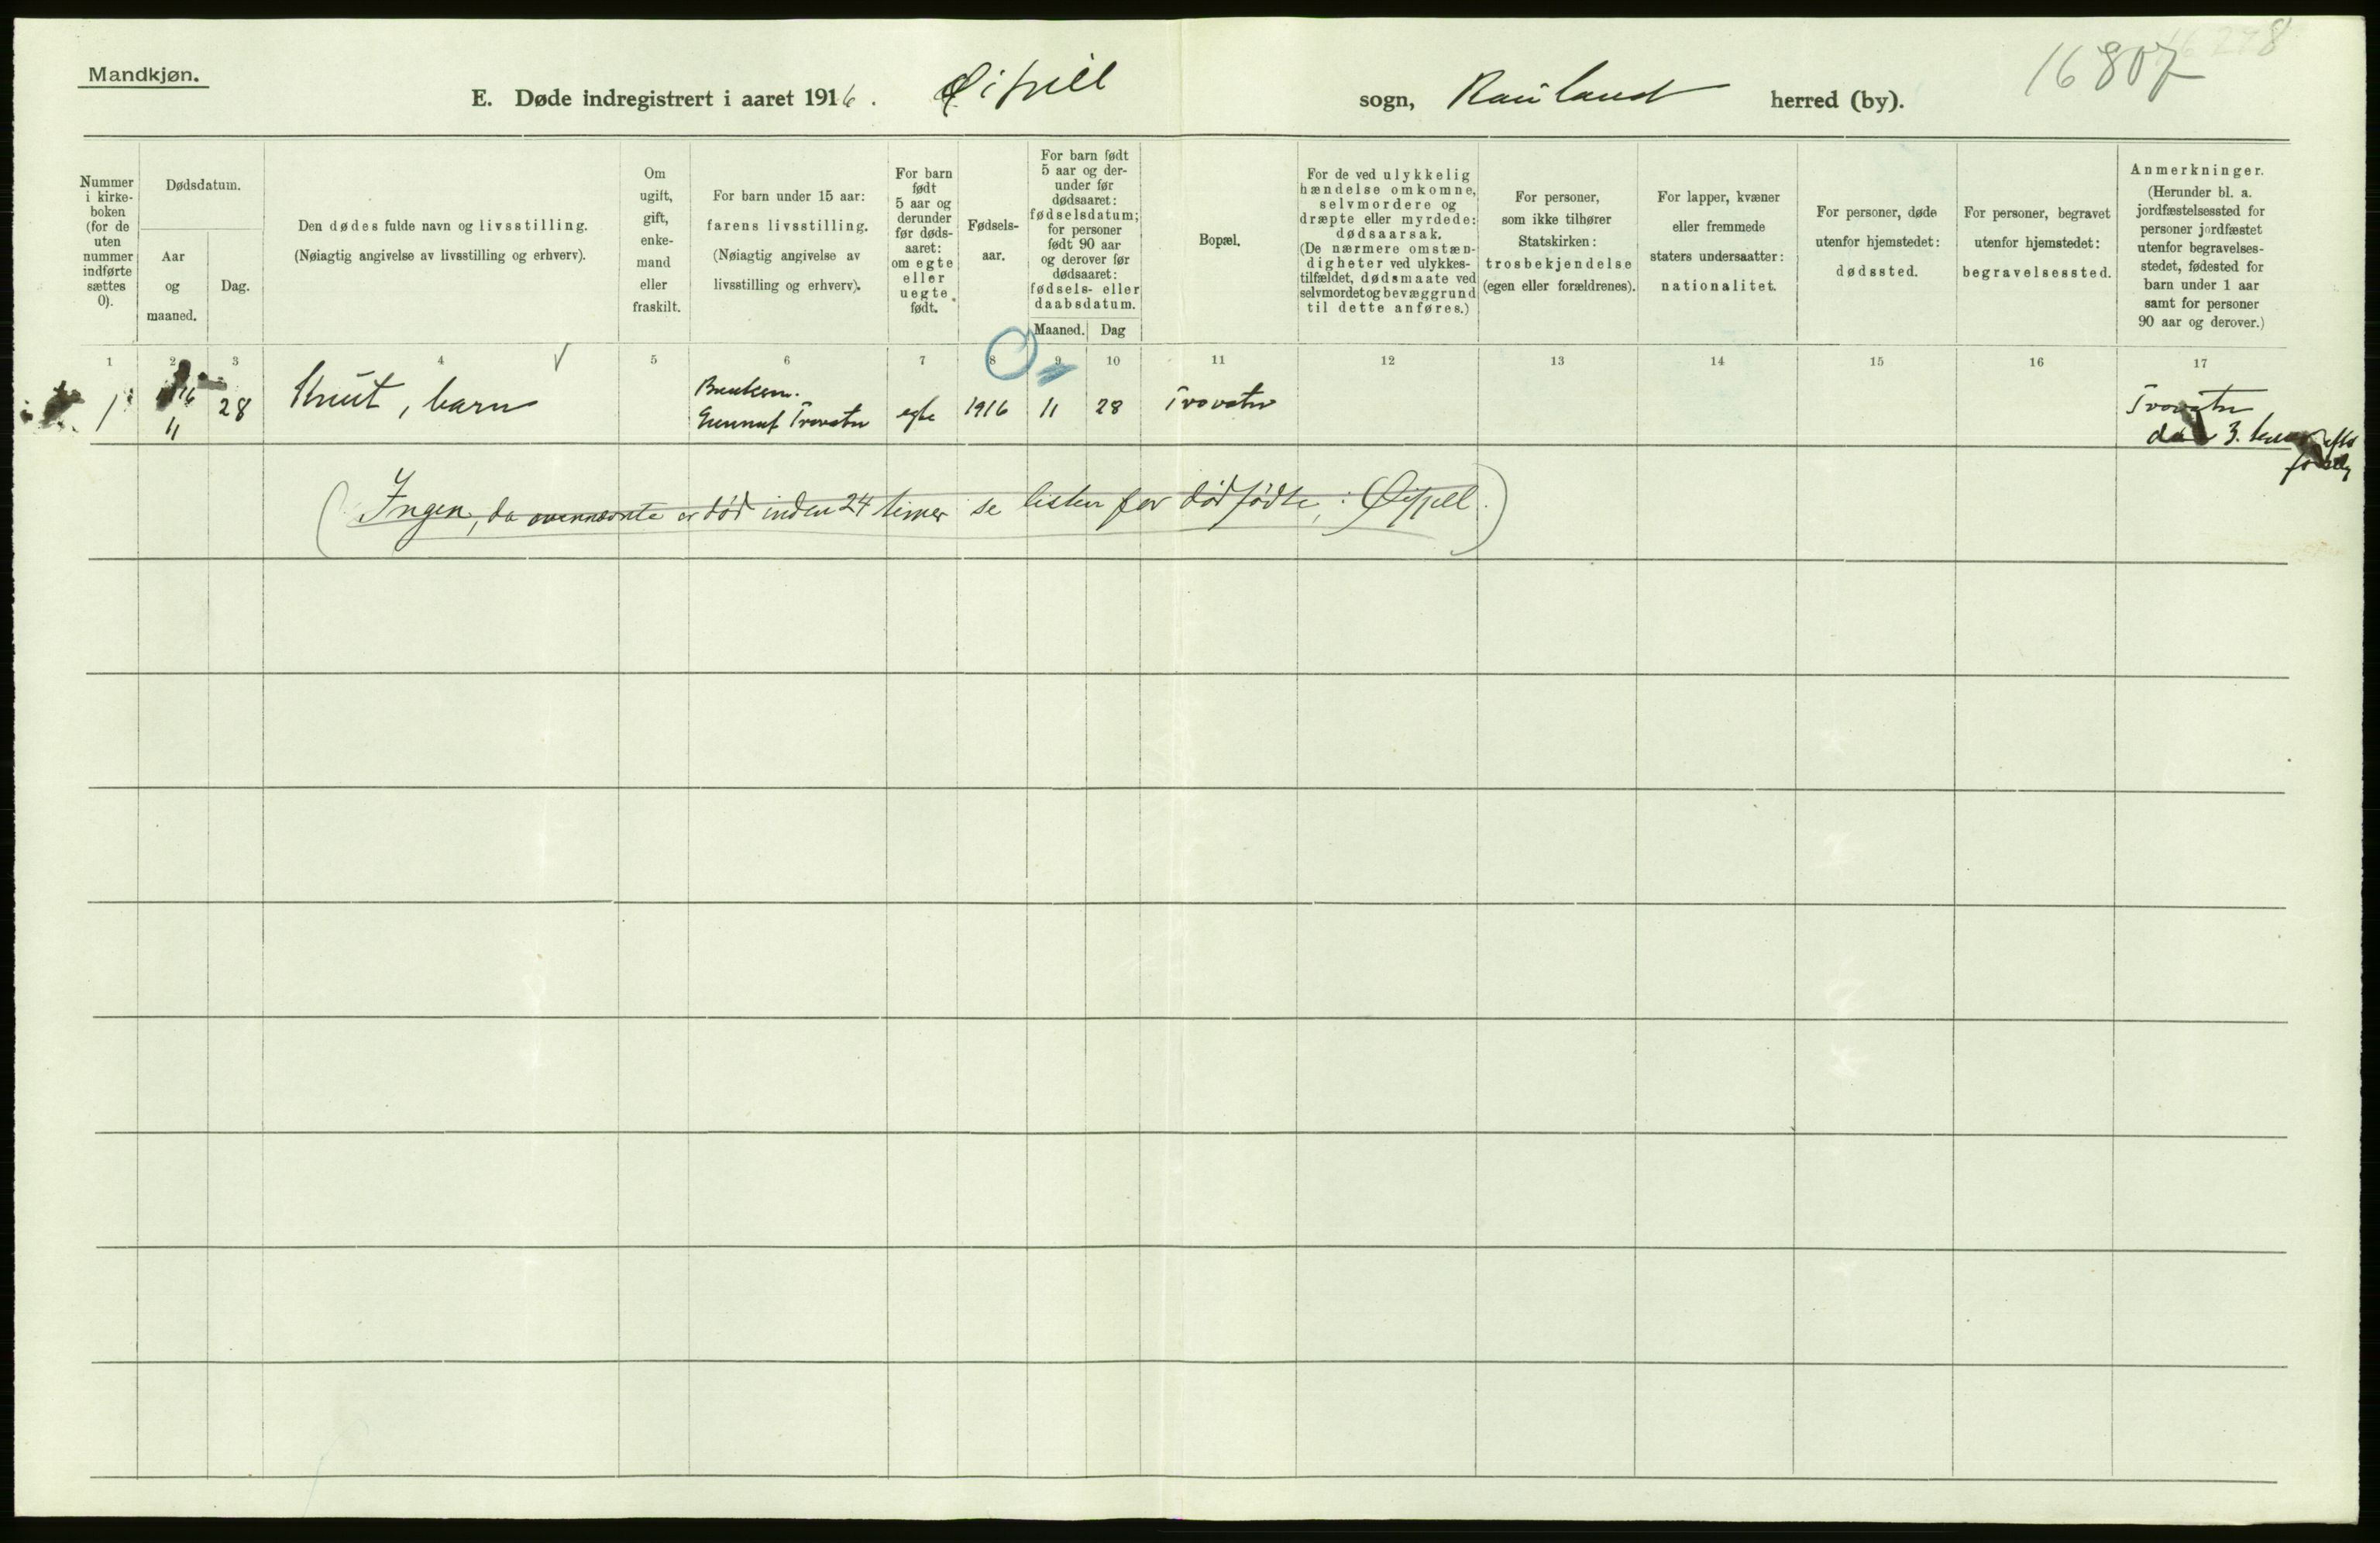 Mandkjøn.
16807
E. Døde indregistrert i aaret 1916. Øifjell sogn, Rauland herred (by).
Nummer
i kirke-
boken
(for de
uten
nummer
indførte
sættes
0).
Dødsdatum.
Aar
og
maaned.
Dag.
Den dødes fulde navn og livsstilling.
(Nøiagtig angivelse av livsstilling og erhverv).
Om
ugift,
gift,
enke-
mand
eller
fraskilt.
For barn under 15 aar:
farens livsstilling.
(Nøiagtig angivelse av
livsstilling og erhverv).
For barn
født
5 aar og
derunder
før døds-
aaret:
om egte
eller
uegte
født.
Fødsels-
aar.
For barn født
5 aar og der-
under før
dødsaaret:
fødselsdatum;
for personer
født 90 aar
og derover før
dødsaaret:
fødsels- eller
daabsdatum.
Maaned. Dag
Bopæl.
For de ved ulykkelig
hændelse omkomne,
selvmordere og
dræpte eller myrdede:
dødsaarsak.
(De nærmere omstæn-
digheter ved ulykkes-
tilfældet, dødsmaate ved
selvmordet og bevæggrund
til dette anføres.)
For personer,
som ikke tilhører
Statskirken:
trosbekjendelse
(egen eller forældrenes).
For lapper, kvæner
eller fremmede
staters undersaatter:
nationalitet.
For personer, døde
utenfor hjemstedet:
dødssted.
For personer, begravet
utenfor hjemstedet:
begravelsessted.
Anmerkninger.
(Herunder bl. a.
jordfæstelsessted for
personer jordfæstet
utenfor begravelses-
stedet, fødested for
barn under 1 aar
samt for personer
90 aar og derover.)
1 2 3 4 5 6 7 8 9 10 11 12 13 14 15 16 17
1 16 11 28 Knut, barn Gunnuf Trovatn egte 1916 11 28 Trovatn Trovatn
3.
(Ingen, da ovennævnte er død inden 24 timer se listen for dødfødte, i Øifjell.)